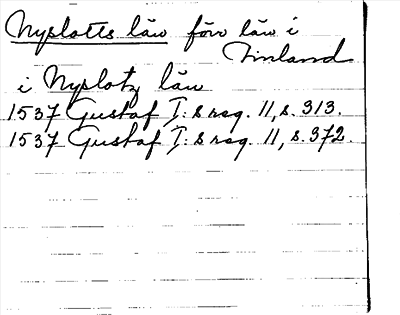 Nyslotts län förv län i
Finland
i Nyslotz län
1537 Gustaf I:s reg. 11, s. 313.
1537 Gustaf I:s reg. 11, s. 372.